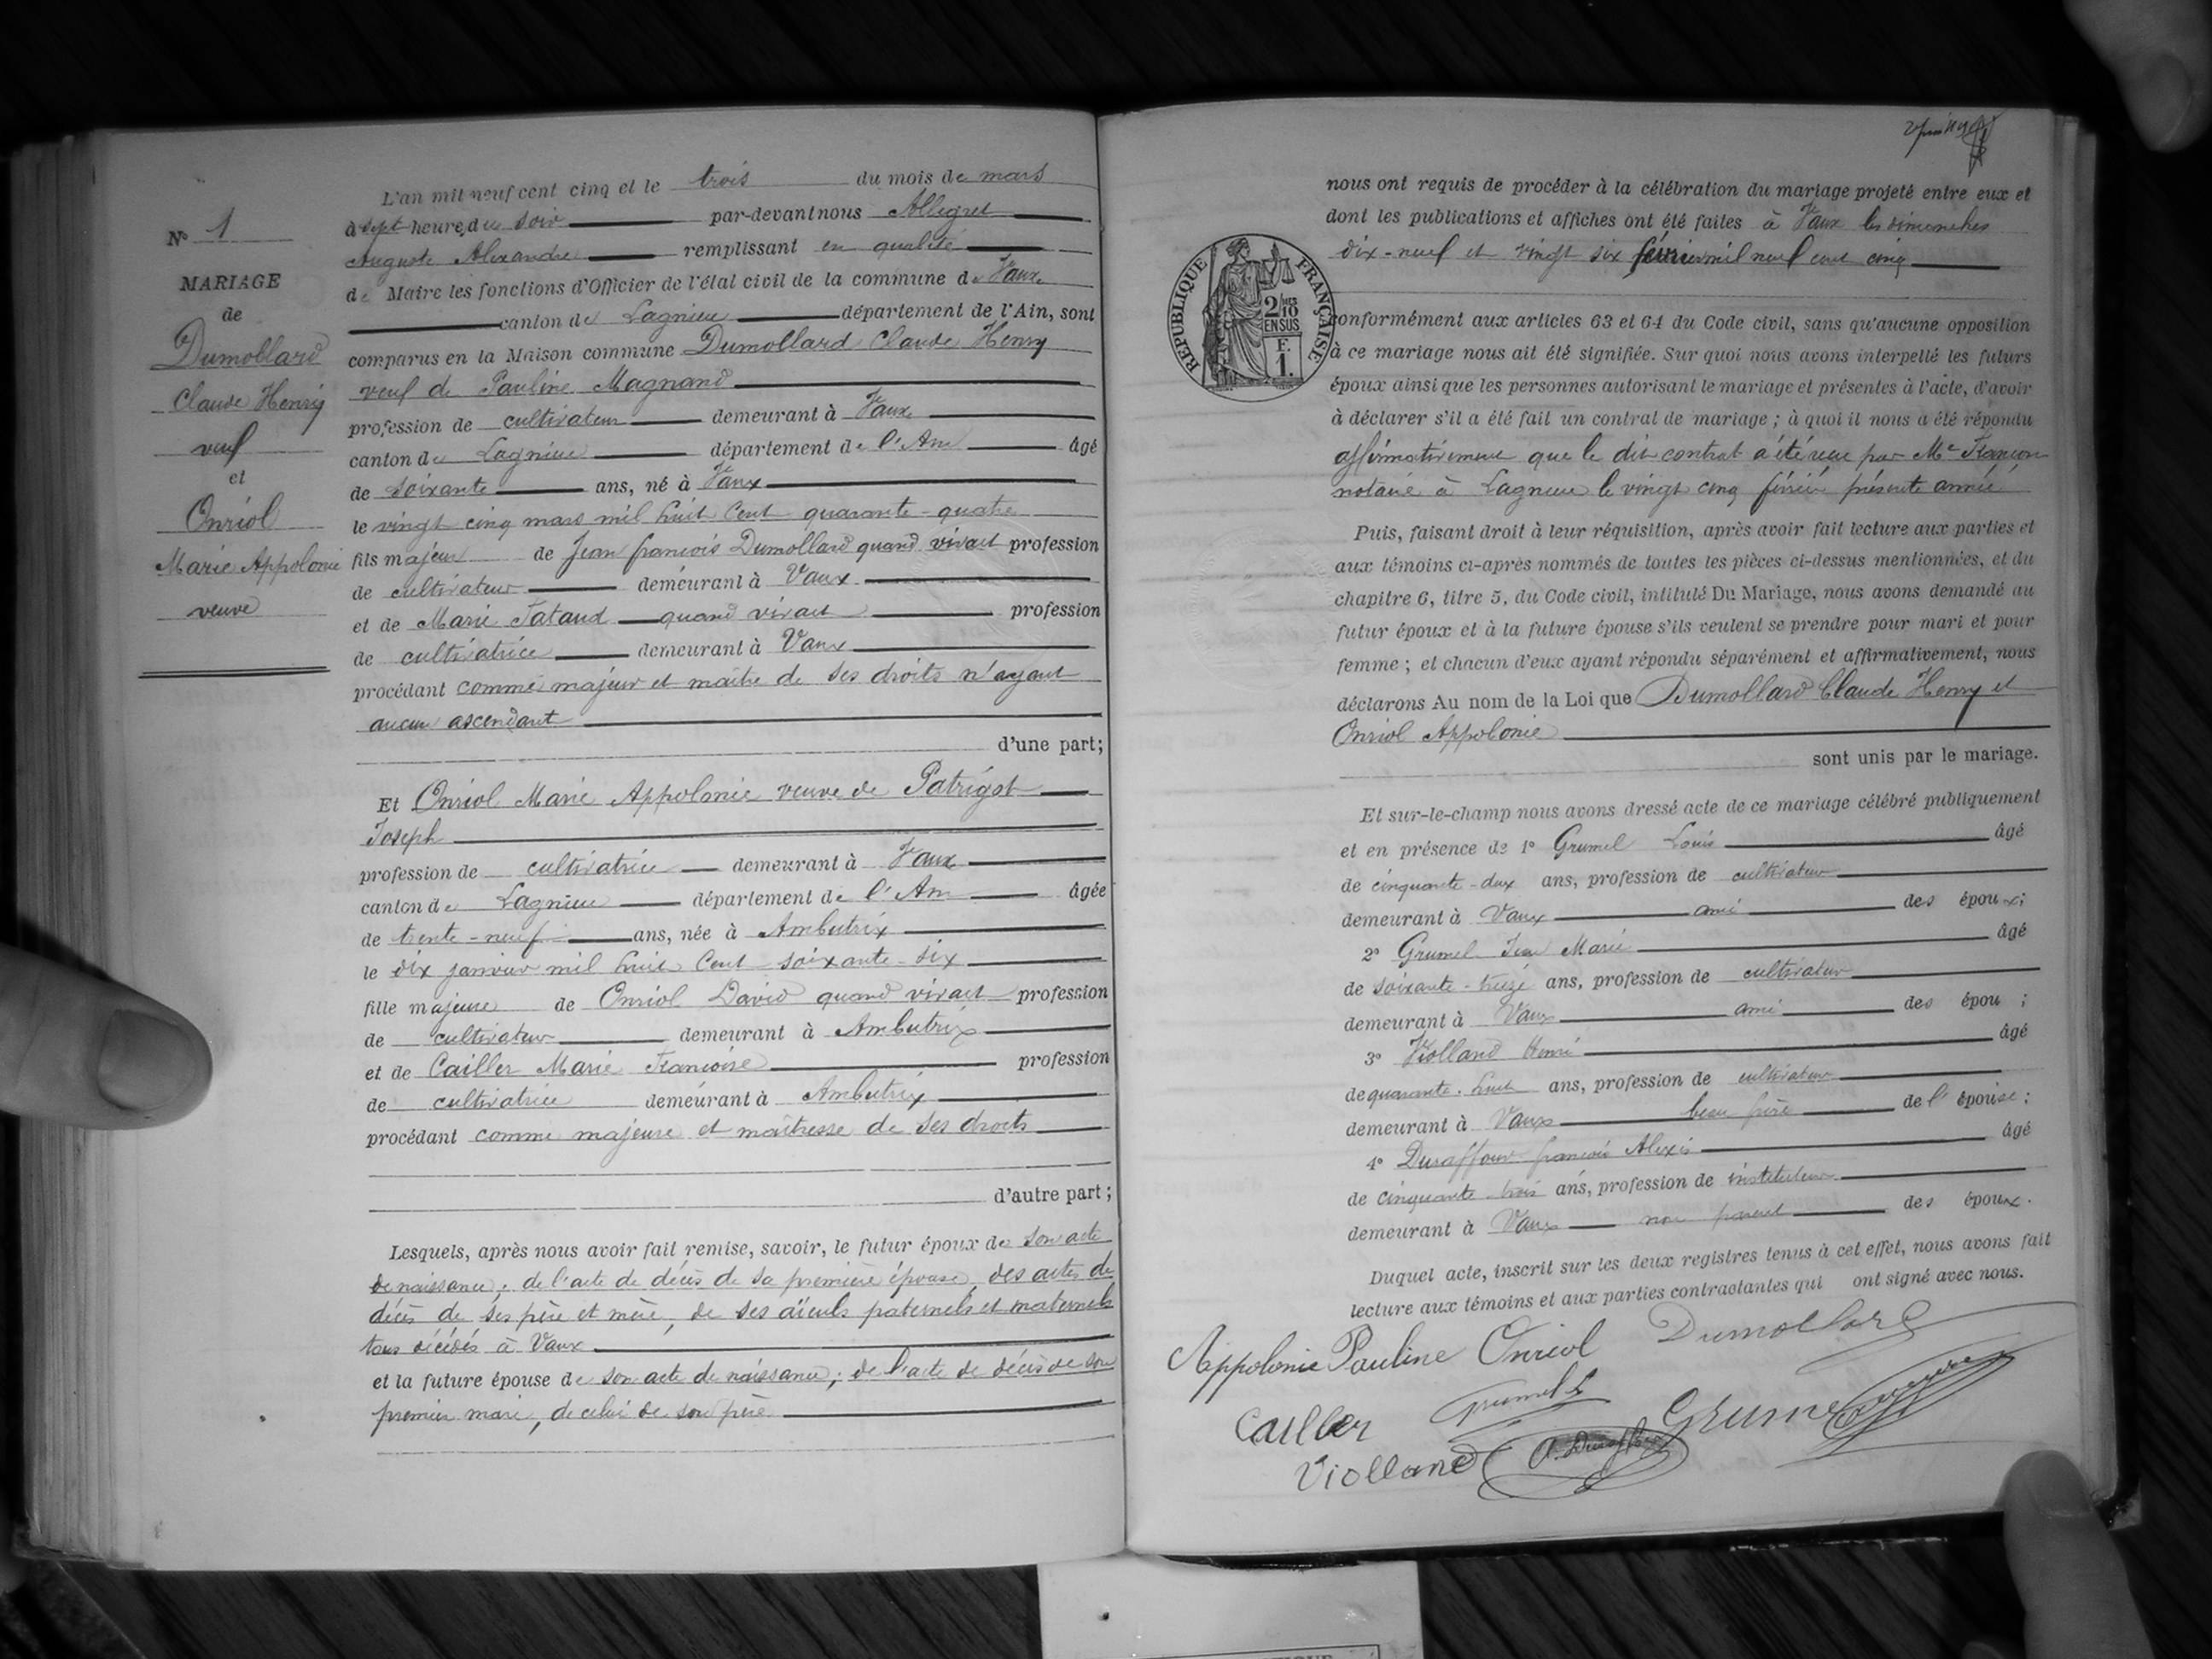 N° 1
MARIAGE
de
Dumollard
Claude Henry
veuf
et
Onriol
Marie Appolonie
veuve
L'an mil neuf cent cinq et le trois du mois de mars
à sept heure, du soir par-devant nous Allegret
Auguste Alexandre remplissant en qualité
de Maire les fonctions d'Officier de l'état civil de la commune de Vaux
canton de Lagnieu département de l'Ain, sont
comparus en la Maison commune Dumollard Claude Henry
veuf de Pauline Magnand
profession de cultivateur demeurant à Vaux
canton de Lagnieu département de l'Ain âgé
de soixante ans, né à Vaux
le vingt cinq mars mil huit cent quarante-quatre
fils majeur de Jean françois Dumollard quand vivait profession
de cultivateur demeurant à Vaux
et de Marie Tataud quand vivait profession
de cultivatrice demeurant à Vaux
procédant comme majeur et maître de ses droits n'ayant
aucun ascendant
d'une part;
Et Onriol Marie Appolonie veuve de Patrigot
Joseph
profession de cultivatrice demeurant à Vaux
canton de Lagnieu département de l'Ain âgée
de trente-neuf ans, née à Ambutrix
le dix janvier mil huit cent soixante-six
fille majeure de Onriol David quand vivait profession
de cultivateur demeurant à Ambutrix
et de Cailler Marie Françoise profession
de cultivatrice demeurant à Ambutrix
procédant comme majeure et maîtresse de ses droits
d'autre part;
Lesquels, après nous avoir fait remise, savoir, le futur époux de son acte
de naissance; de l'acte de décès de sa première épouse, des actes de
décès de ses père et mère, de ses aïeuls paternels et maternels
tous décédés à Vaux
et la future épouse de son acte de naissance; de l'acte de décès de son
premier mari, de celui de son père
nous ont requis de procéder à la célébration du mariage projeté entre eux et
dont les publications et affiches ont été faites à Vaux les dimanches
dix-neuf et vingt six février mil neuf cent cinq
RÉPUBLIQUE FRANÇAISE
2/10 EN SUS
F. 1.
conformément aux articles 63 et 64 du Code civil, sans qu'aucune opposition
à ce mariage nous ait été signifiée. Sur quoi nous avons interpellé les futurs
époux ainsi que les personnes autorisant le mariage et présentes à l'acte, d'avoir
à déclarer s'il a été fait un contrat de mariage; à quoi il nous a été répondu
affirmativement que le dit contrat a été reçu par Me Françon
notaire à Lagnieu le vingt cinq février présente année
Puis, faisant droit à leur réquisition, après avoir fait lecture aux parties et
aux témoins ci-après nommés de toutes les pièces ci-dessus mentionnées, et du
chapitre 6, titre 5, du Code civil, intitulé Du Mariage, nous avons demandé au
futur époux et à la future épouse s'ils veulent se prendre pour mari et pour
femme; et chacun d'eux ayant répondu séparément et affirmativement, nous
déclarons Au nom de la Loi que Dumollard Claude Henry et
Onriol Appolonie
sont unis par le mariage.
Et sur-le-champ nous avons dressé acte de ce mariage célébré publiquement
et en présence de 1° Grumel Louis âgé
de cinquante-deux ans, profession de cultivateur
demeurant à Vaux ami des époux;
2° Grumel Jean Marie âgé
de soixante-treize ans, profession de cultivateur
demeurant à Vaux ami des épou ;
3° Violland Henri âgé
de quarante-huit ans, profession de cultivateur
demeurant à Vaux beau frère de l'épouse;
4° Duraffour françois Alexis âgé
de cinquante-trois ans, profession de instituteur
demeurant à Vaux non parent des époux.
Duquel acte, inscrit sur les deux registres tenus à cet effet, nous avons fait
lecture aux témoins et aux parties contractantes qui ont signé avec nous.
Appolonie Pauline Onriol Dumollard
Cailler Grumel L Grumel
Violland A. Duraffour